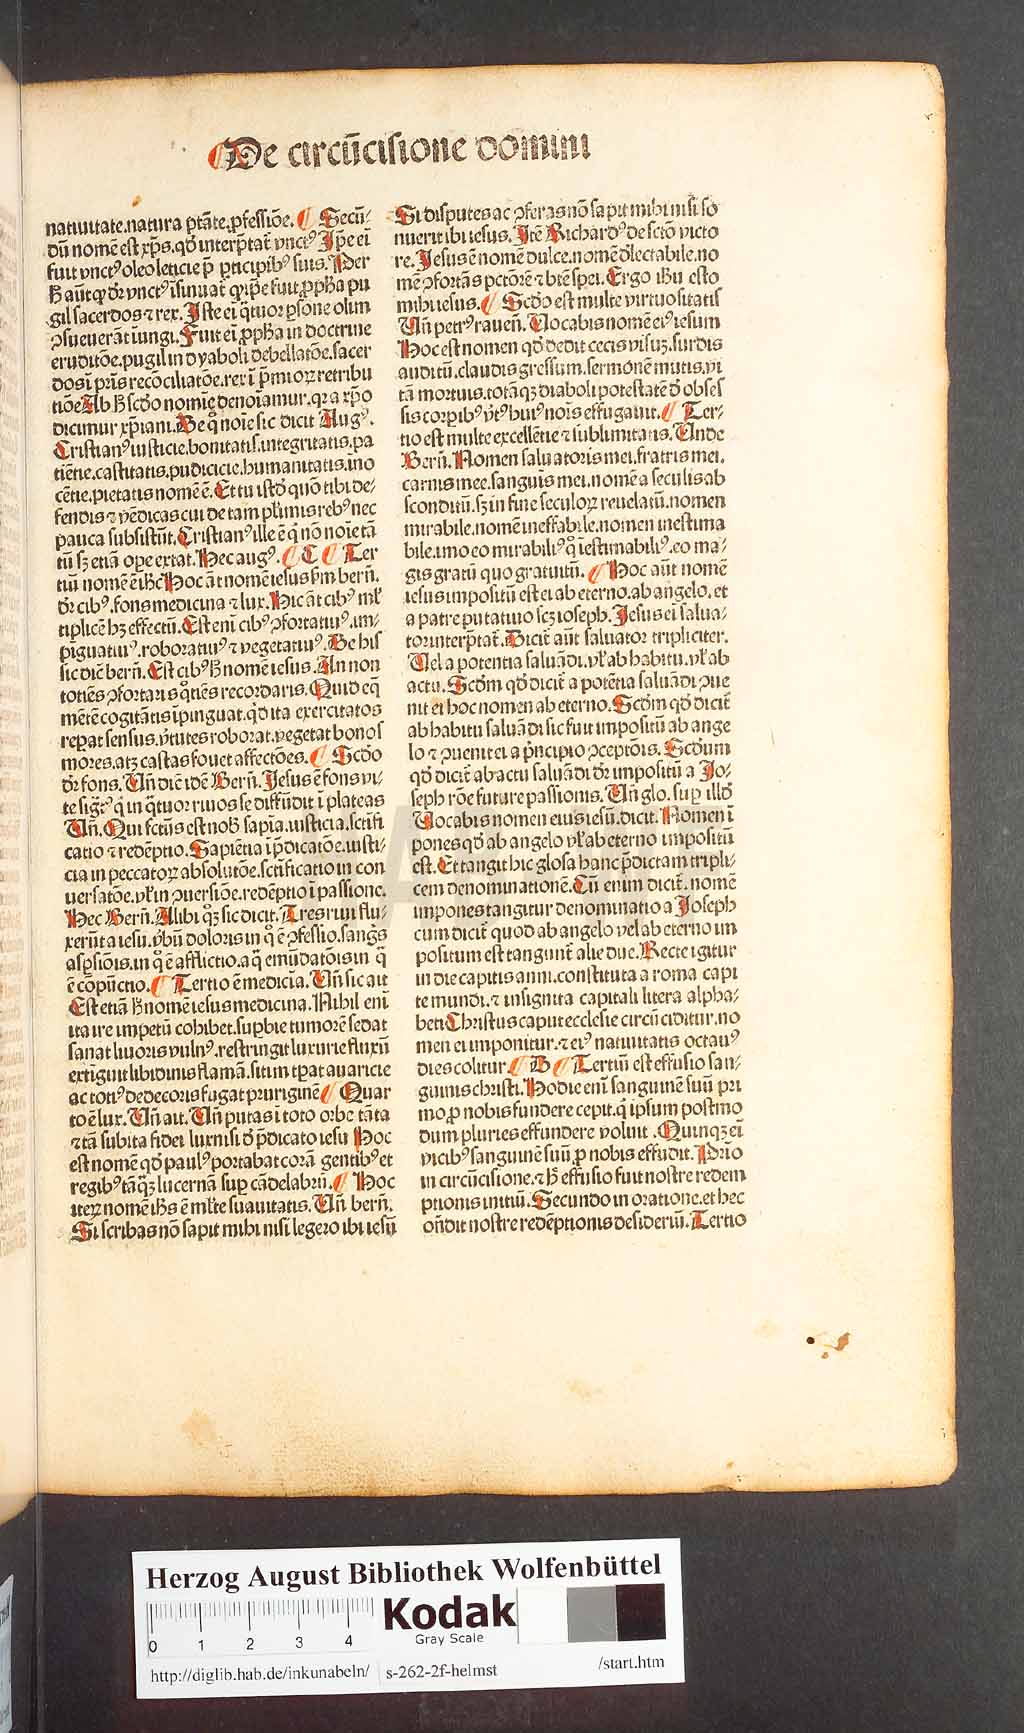 De circūcisione domini
natiuitate.natura ꝓtāte.ꝓfessiōe. Secū-
dū nomē est xp̄s. qd̓ interp̄tat̄ vnctꝰ Ip̄e ei̅
fuit vnctꝰ oleo leticie p̄ ꝑticipibꝰ suis. Per
h̄ aūt qd̓ dr̄ vnctꝰ ĩsinuat̄ q̃ ip̄e fuit ꝓpha pu
gil sacerdos ⁊ rex. Iste ei̅ q̃tuor ꝑsone olim
ꝯsueuerāt iungi. Fuit ei̅ ꝓpha in doctrine
eruditōe. pugil in dyaboli debellatōe. sacer
dos ĩ pr̄is recōciliatōe. rex ĩ p̄mioꝝ retribu
tiōe Ab h̄ scd̓o nomīe denoīamur. qꝛ a xp̄o
dicimur xp̄iani. De qͦ noīe sic dicit Augꝰ.
Cristianꝰ iusticie. bonitatis. integritatis. pa
tiētie. castitatis. pudicicie. humanitatis. ino
cētie. pietatis nomē ē. Et tu istd̓ quō tibi de-
fendis ⁊ vēdicas cui de tam pl̄imis rebꝰ nec
pauca subsistūt. Cristianꝰ ille ē q̃ nō noīe tā
tū sꝫ etiā oꝑe extat. Hec augꝰ. C Ter
tiū nomē ē ih̄c Hoc āt nomē iesus ẜm bern̄.
dr̄ cibꝰ. fons medicina ⁊ lux. Hic āt cibꝰ ml̓
tiplicē hꝫ effectū. Est eni̅ cibꝰ ꝯfortatiuꝰ. im-
piguatiuꝰ. roboratiuꝰ ⁊ vegetatiuꝰ. De his
sic diē bern̄. Est cibꝰ h̄ nomē iesus. An non
totiēs ꝯfortaris qͦtiēs recordaris. Quid eq̄
mētē cogitātis ĩpinguat. qd̓ ita exercitatos
reꝑat sensus. v̓tutes roborat. vegetat bonos
mores. atꝫ castas fouet affectōes. Scd̓o
dr̄ fons. Vn̄ diē idē Bern̄. Iesus ē fons vi-
te sigt̄ꝰ q̃ in q̃tuor riuos se diffūdit ĩ plateas
Vn̄. Qui fctūs est nob̄ sapīa. iusticia. sctifi
catio ⁊ redēptio. Sapiētia ĩ p̄dicatōe. iusti-
cia in peccatoꝝ absolutōe. sctificatio in con
uersatōe. vl̓ in ꝯuersiōe. redēptio ĩ passione.
Hec Bern̄. Alibi qͦꝫ sic dicit. Tres riui flu-
xerūt a iesu. v̓bū doloris in qͦ ē ꝯfessio. sangs̄
asꝑsiōis. in qͦ ē afflictio. aq̃ emūdatōis in q̃
ē cōpūctio. Tertio ē medicīa. Vn̄ sic ait
Est etiā h̄ nomē iesus medicina. Nihil eni̅
ita ire impetū cohibet. suꝑbie tumorē sedat
sanat liuoris vulnꝰ. restringit luxurie fluxū
extīguit libidinis flāmā. sitim tꝑat auaricie
ac totiꝰ dedecoris fugat pruriginē Quar
to ē lux. Vn̄ ait. Vn̄ putas ĩ toto orbe tāta
⁊ tā subita fidei lux nisi d̓ p̄dicato iesu Hoc
est nomē qd̓ paulꝰ portabat corā gentibꝰ et
regibꝰ tāqꝫ lucernā suꝑ cādelabrū. Hoc
iteꝝ nomē ih̄s ē ml̓te suauitatis. Vn̄ bern̄.
Si scribas nō sapit mihi nisi legero ibi iesū
Si disputes ac ꝯferas nō sapit mihi nisi so
nuerit ibi iesus. Itē Richardꝰ de sctō victo
re. Iesus ē nomē dulce. nomē d̓lectabile. no
mē ꝯfortās pctōrē ⁊ btē spei. Ergo ih̄u esto
mihi iesus. Scd̓o est multe virtuositatis
Vn̄ petrꝰ rauen̄. Vocabis nomē eiꝰ iesum
Hoc est nomen qd̓ dedit cecis visuꝫ. surdis
auditū. claudis gressum. sermonē mutis. vi
tā mortuis. totāqꝫ diaboli potestatē d̓ obses
sis corꝑibꝰ v̓tꝰ huiꝰ noīs effugauit. Ter-
tio est multe excellētie ⁊ sublimitatis. Unde
Bern̄. Nomen saluatoris mei. fratris mei.
carnis mee. sanguīs mei. nomē a seculis ab
sconditū. sꝫ in fine seculoꝝ reuelatū. nomen
mirabile. nomē ineffabile. nomen inestima
bile. imo eo mirabiliꝰ qͦ iestimabiliꝰ. eo ma-
gis gratū quo gratuitū. Hoc aūt nomē
iesus impositū est ei ab eterno. ab angelo. et
a patre putatiuo scꝫ ioseph. Iesus ei̅ salua-
tor interp̄tat̄. Dicit̄ aūt saluator tripliciter.
Vel a potentia saluādi. vl̓ ab habitu. vl̓ ab
actu. Scd̓m qd̓ dicit̄ a potētia saluādi ꝯue
nit ei hoc nomen ab eterno. Scd̓m qd̓ dicit̄
ab habitu saluādi sic fuit impositū ab ange
lo ⁊ ꝯuenit ei a p̄ncipio ꝯceptōis. Scd̓um
qd̓ dicit̄ ab actu saluādi dr̄ impositū a Jo-
seph rōe future passionis. Vn̄ glo. suꝑ illd̓
Vocabis nomen eius iesū. dicit. Nomen ĩ
pones qd̓ ab angelo vl̓ ab eterno impositū
est. Et tangit hic glosa hanc p̄dictam tripli-
cem denominationē. Cū enim dicit̄. nomē
impones tangitur denominatio a Joseph
cum dicit̄ quod ab angelo vel ab eterno im
positum est tangunt̄ alie due. Recte igitur
in die capitis anni. constituta a roma capi
te mundi. ⁊ insignita capitali litera alpha-
beti Christus caput ecclesie circūciditur. no
men ei imponitur. ⁊ eiꝰ natiuitatis octauꝰ
dies colitur. D Tertiū est effusio san-
guinis christi. Hodie eni̅ sanguinē suū pri
mo ꝓ nobis fundere cepit. q̃ ipsum postmo
dum pluries effundere voluit. Quinqꝫ ei̅
vicibꝰ sanguinē suū ꝓ nobis effudit. Primo
in circūcisione. ⁊ h̄ effusio fuit nostre redem
ptionis initiū. Secundo in oratione. et hec
on̄dit nostre redēptionis desideriū. Tertio
Herzog August Bibliothek Wolfenbüttel
0 1 2 3 4
Kodak
Gray Scale
http://diglib.hab.de/inkunabeln/ s-262-2f-helmst /start.htm